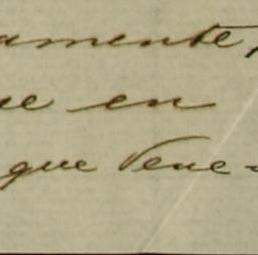 amente,
ue en
que Vene-